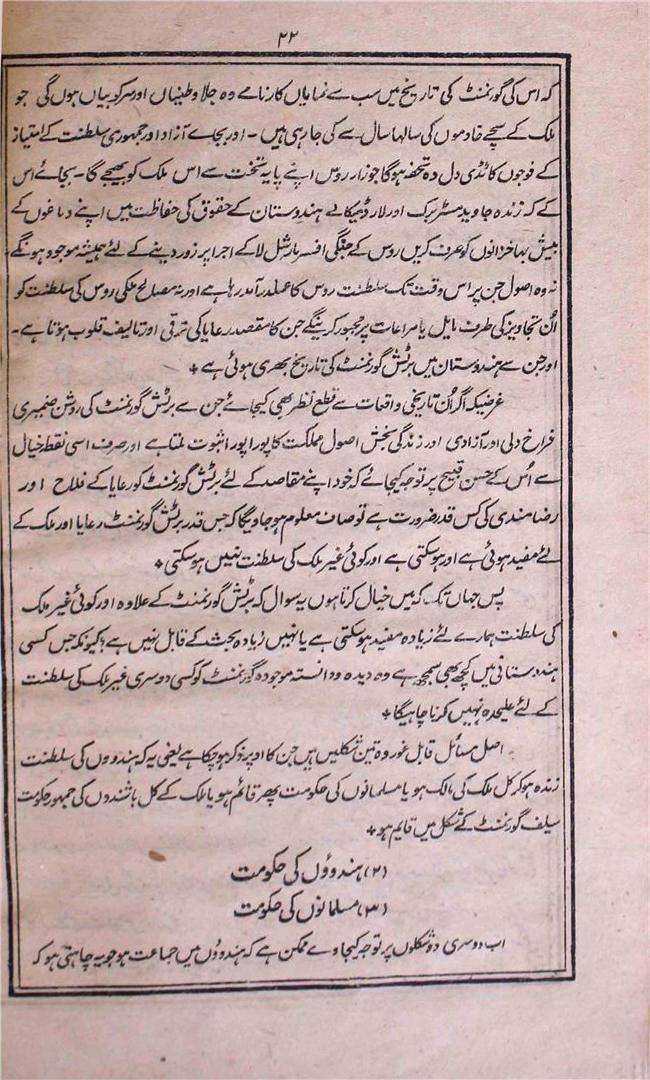 ۲۲
کہ اس کی گورنمنٹ کی تاریخ میں سب سے نمایاں کارنامے وہ جلا وطنیاں اور سرکوبیاں ہوں گی جو
ملک کے سچے خادموں کی سالہا سال سے کی جا رہی ہیں ۔ اور بجائے آزاد اور جمہوری سلطنت کے امتیاز
کے فوجوں کا ٹڈی دل وہ تحفہ ہوگا جو زار روس اپنے پایہ تخت سے اس ملک کو بھیجے گا ۔ بجائے اس
کے کہ زندہ جاوید مسٹر برک اور لارڈ میکالے ہندوستان کے حقوق کی حفاظت میں اپنے دماغوں کے
بیش بہا خزانوں کو صرف کریں روس کے جنگی افسر مارشل لا کے اجرا پر زور دینے کے لئے ہمیشہ موجود ہونگے
نہ وہ اصول جن پر اس وقت تک سلطنت روس کا عملدرآمد رہا ہے اور نہ مصالح ملکی روس کی سلطنت کو
اُن تجاویز کی طرف مایل یا مراعات پر مجبور کرینگے جن کا مقصد رعایا کی ترقی اور تالیف قلوب ہوتا ہے ۔
اور جن سے ہندوستان میں برٹش گورنمنٹ کی تاریخ بھری ہوئی ہے +
غرضیکہ اگر اُن تاریخی واقعات سے قطع نظر بھی کیجائے جن سے برٹش گورنمنٹ کی روشن ضمیری
فراخ دلی اور آزادی اور زندگی بخش اصول مملکت کا پورا پورا ثبوت ملتا ہے اور صرف اسی نقطہ خیال
سے اُس کے حسن قبیح پر توجہ کیجائے کہ خود اپنے مقاصد کے لئے برٹش گورنمنٹ کو رعایا کے فلاح اور
رضامندی کی کس قدر ضرورت ہے تو صاف معلوم ہو جاویگا کہ جس قدر برٹش گورنمنٹ رعایا اور ملک کے
لئے مفید ہوئی ہے اور ہو سکتی ہے اور کوئی غیر ملک کی سلطنت نہیں ہو سکتی +
پس جہاں تک کہ میں خیال کرتا ہوں یہ سوال کہ برٹش گورنمنٹ کے علاوہ اور کوئی غیر ملک
کی سلطنت ہمارے لئے زیادہ مفید ہو سکتی ہے یا نہیں زیادہ بحث کے قابل نہیں ہے ؟ کیونکہ جس کسی
ہندوستانی میں کچھ بھی سمجھ ہے وہ دیدہ و دانستہ موجودہ گورنمنٹ کو کسی دوسری غیر ملک کی سلطنت
کے لئے علیحدہ نہیں کرنا چاہیگا +
اصل مسائل قابل غور وہ تین شکلیں ہیں جن کا اوپر ذکر ہو چکا ہے یعنی یہ کہ ہندووں کی سلطنت
زندہ ہو کر کل ملک کی مالک ہو یا مسلمانوں کی حکومت پھر قائم ہو یا ملک کے کل باشندوں کی جمہور حکومت
سیلف گورنمنٹ کے شکل میں قایم ہو +
(۲) ہندوؤں کی حکومت
(۳) مسلمانوں کی حکومت
اب دوسری دو شکلوں پر توجہ کیجاوے ممکن ہے کہ ہندوؤں میں جماعت ہو جو یہ چاہتی ہو کہ